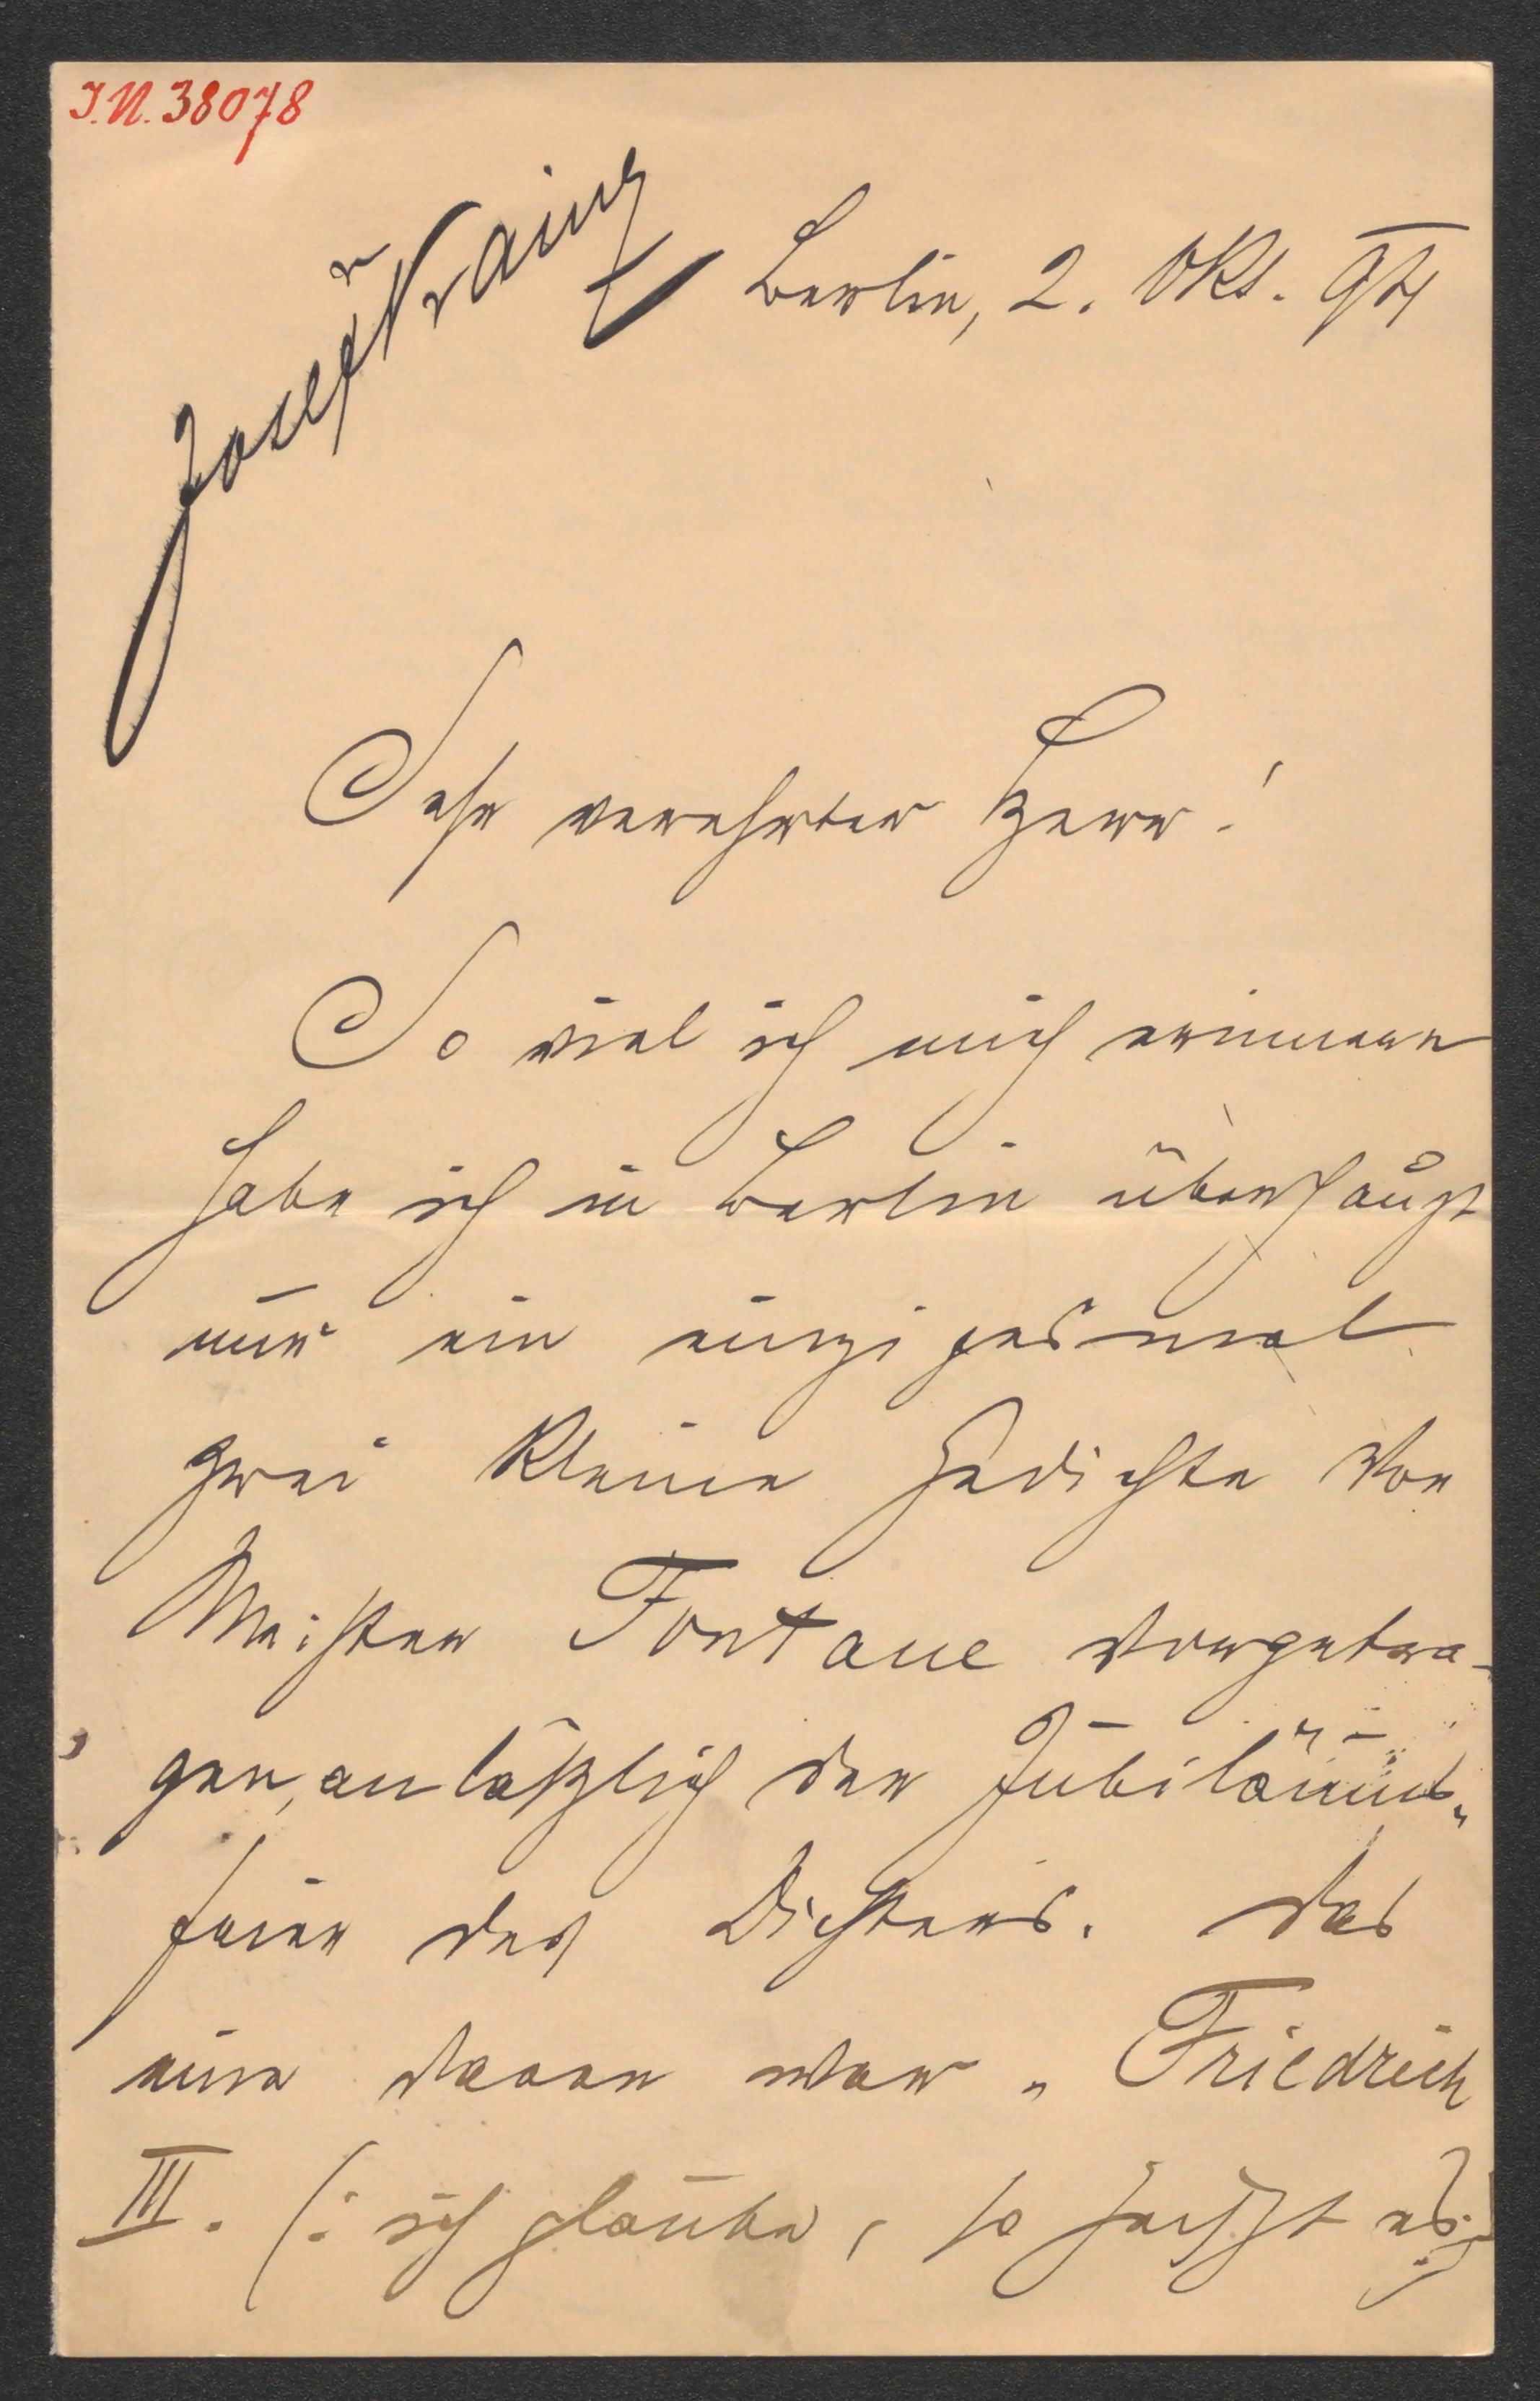 I.N. 38078
Josef Kainz
Berlin, 2. Okt. 94
Sehr verehrter Herr!
So viel ich mich erinnere
habe ich in Berlin überhaupt
nur ein einzigesmal
zwei kleine Gedichte von
Meister Fontane vorgetra-
gen, anläßlich der Jubiläums-
feier des Dichters. Das
eine davon war „Friedrich
III. (: ich glaube, so heißt es:)